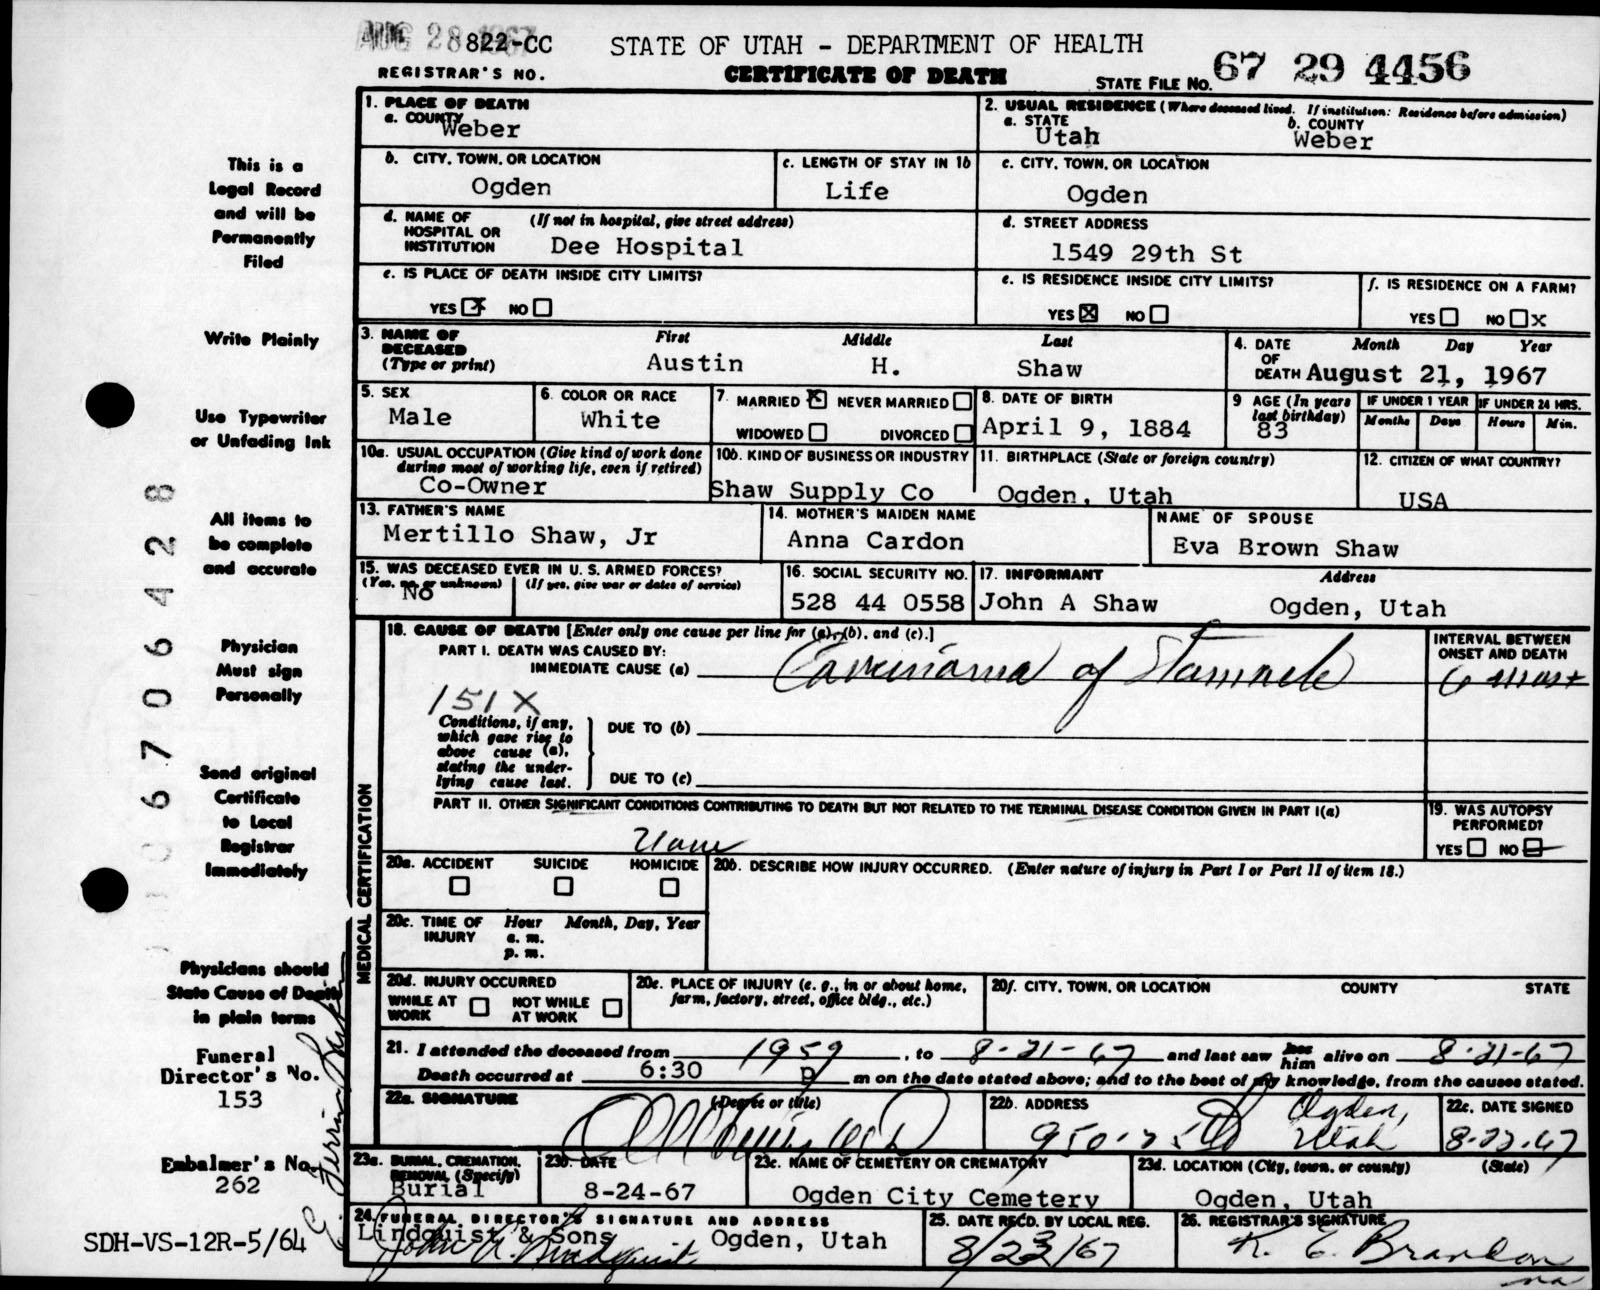 AUG 28 1967
822-CC STATE OF UTAH - DEPARTMENT OF HEALTH
REGISTRAR'S NO. CERTIFICATE OF DEATH STATE FILE NO. 67 29 4456
1. PLACE OF DEATH
a. COUNTY Weber
2. USUAL RESIDENCE (Where deceased lived. If institution: Residence before admission)
a. STATE Utah b. COUNTY Weber
b. CITY, TOWN, OR LOCATION Ogden
c. LENGTH OF STAY IN 1b Life
c. CITY, TOWN, OR LOCATION Ogden
d. NAME OF HOSPITAL OR INSTITUTION (If not in hospital, give street address) Dee Hospital
d. STREET ADDRESS 1549 29th St
e. IS PLACE OF DEATH INSIDE CITY LIMITS? YES X NO
e. IS RESIDENCE INSIDE CITY LIMITS? YES X NO
f. IS RESIDENCE ON A FARM? YES NO X
3. NAME OF DECEASED (Type or print) First Austin Middle H. Last Shaw
4. DATE OF DEATH Month Day Year August 21, 1967
5. SEX Male
6. COLOR OR RACE White
7. MARRIED X NEVER MARRIED WIDOWED DIVORCED
8. DATE OF BIRTH April 9, 1884
9 AGE (In years last birthday) 83
IF UNDER 1 YEAR Months Days
IF UNDER 24 HRS. Hours Min.
10a. USUAL OCCUPATION (Give kind of work done during most of working life, even if retired) Co-Owner
10b. KIND OF BUSINESS OR INDUSTRY Shaw Supply Co
11. BIRTHPLACE (State or foreign country) Ogden, Utah
12. CITIZEN OF WHAT COUNTRY? USA
13. FATHER'S NAME Mertillo Shaw, Jr
14. MOTHER'S MAIDEN NAME Anna Cardon
NAME OF SPOUSE Eva Brown Shaw
15. WAS DECEASED EVER IN U. S. ARMED FORCES?
(Yes, no, or unknown) No (If yes, give war or dates of service)
16. SOCIAL SECURITY NO. 528 44 0558
17. INFORMANT John A Shaw Address Ogden, Utah
MEDICAL CERTIFICATION
18. CAUSE OF DEATH [Enter only one cause per line for (a), (b), and (c).]
PART I. DEATH WAS CAUSED BY:
IMMEDIATE CAUSE (a) Carcinoma of Stomach
INTERVAL BETWEEN ONSET AND DEATH 6
151X
Conditions, if any, which gave rise to above cause (a), stating the underlying cause last.
DUE TO (b)
DUE TO (c)
PART II. OTHER SIGNIFICANT CONDITIONS CONTRIBUTING TO DEATH BUT NOT RELATED TO THE TERMINAL DISEASE CONDITION GIVEN IN PART I(a)
None
19. WAS AUTOPSY PERFORMED? YES NO
20a. ACCIDENT SUICIDE HOMICIDE
20b. DESCRIBE HOW INJURY OCCURRED. (Enter nature of injury in Part I or Part II of item 18.)
20c. TIME OF INJURY Hour a. m. p. m. Month, Day, Year
20d. INJURY OCCURRED WHILE AT WORK NOT WHILE AT WORK
20e. PLACE OF INJURY (e. g., in or about home, farm, factory, street, office bldg., etc.)
20f. CITY, TOWN, OR LOCATION COUNTY STATE
21. I attended the deceased from 1959, to 8-21-67 and last saw her him alive on 8-21-67
Death occurred at 6:30 p m on the date stated above; and to the best of my knowledge, from the causes stated.
22a. SIGNATURE (Degree or title)
22b. ADDRESS 950-25 Ogden, Utah
22c. DATE SIGNED 8-22-67
23a. BURIAL, CREMATION, REMOVAL (Specify) Burial
23b. DATE 8-24-67
23c. NAME OF CEMETERY OR CREMATORY Ogden City Cemetery
23d. LOCATION (City, town, or county) (State) Ogden, Utah
24. FUNERAL DIRECTOR'S SIGNATURE AND ADDRESS
Lindquist & Sons Ogden, Utah
John A. Lindquist
25. DATE REC'D. BY LOCAL REG. 8/23/67
26. REGISTRAR'S SIGNATURE K. E. Brandon
This is a
Legal Record
and will be
Permanently
Filed
Write Plainly
Use Typewriter
or Unfading Ink
All items to
be complete
and accurate
Physician
Must sign
Personally
Send original
Certificate
to Local
Registrar
Immediately
Physicians should
State Cause of Death
in plain terms
Funeral
Director's No.
153
Embalmer's No.
262
SDH-VS-12R-5/64
0 6 7 0 6 4 2 8